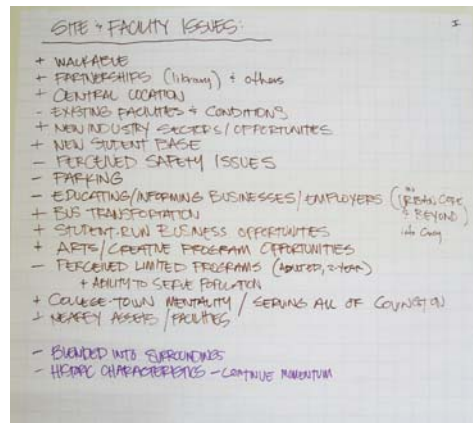 SITE & FACILITY ISSUES: I
+ WALKABLE
+ PARTNERSHIPS (library) & others
+ CENTRAL LOCATION
- EXISTING FACILITIES & CONDITIONS
+ NEW INDUSTRY SECTORS/OPPORTUNITES
+ NEW STUDENT BASE
- PERCEIVED SAFETY ISSUES
- PARKING
- EDUCATING/INFORMING BUSINESSES/EMPLOYERS (in URBAN CORE & BEYOND) into
+ BUS TRANSPORTATION
+ STUDENT-RUN BUSINESS OPPORTUNITES
+ ARTS/CREATIVE PROGRAM OPPORTUNITIES
- PERCEIVED LIMITED PROGRAMS (2-YEAR)
+ ABILITY TO SERVE POPULATION
+ COLLEGE-TOWN MENTALITY / SERVING ALL OF COVINGTON
+ NEARBY ASSETS/FACILITIES
- BLENDED INTO SURROUNDINGS
- HISTORIC CHARACTERISTICS - CONTINUE MOMENTUM